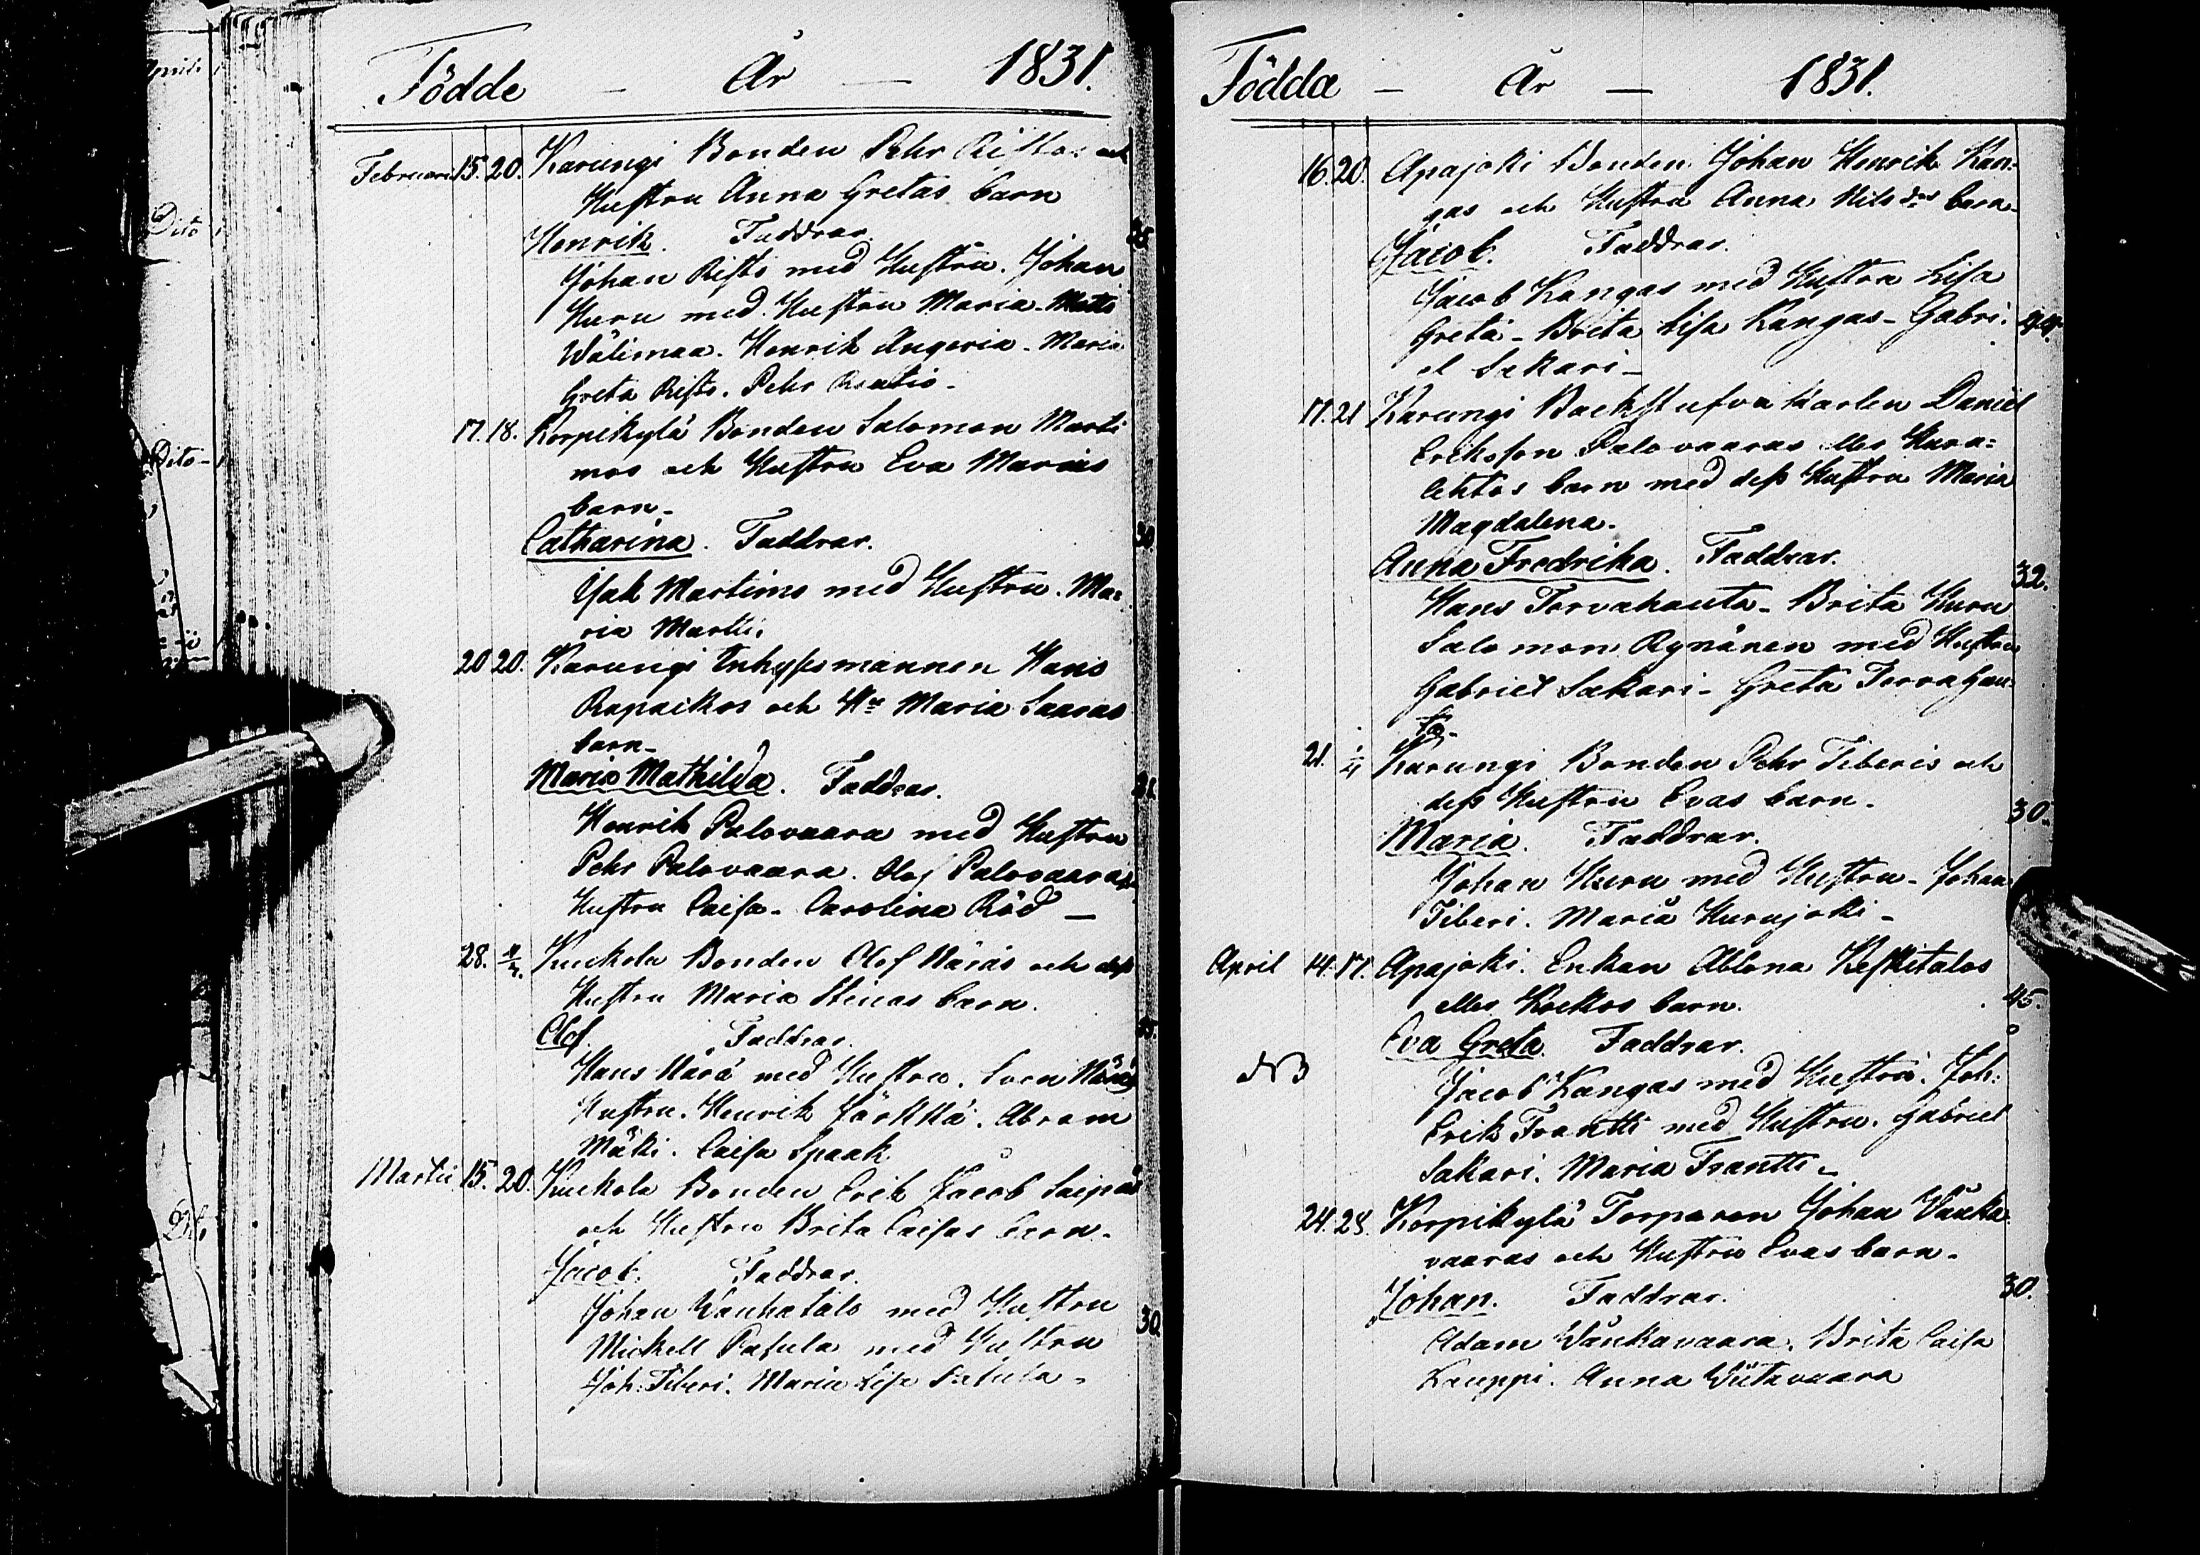 Födde - År - 1831.
Februari 15. 20. Karungi Bonden Pehr Ristos och
Hustru Anna Gretas barn
Henrik. Faddrar. 25.
Johan Risto med Hustru. Johan
Kuru med Hustru Maria. Matts
Wälimaa. Henrik Angeria. Maria
Greta Risto. Pehr Rautio.
17. 18. Korpikylä Bonden Salomon Marti
mos och Hustru Eva Marias
barn.
Catharina. Faddrar. 30.
Isak Martimo med Hustru. Ma=
ria Martti.
20 20. Karungi Inhysesmannen Hans
Rapaikkos och Hu Maria Saaras
barn.
Maria Mathilda. Faddrar. 31.
Henrik Palovaara med Hustru
Pehr Palovaara. Olof Palovaaras
Hustru Caisa. Carolina Röd —
28. 4/4. Kuckola Bonden Olof Näräs och dess
Hustru Maria Stinas barn.
Olof. Faddrar. 35.
Hans Närä med Hustru. Sven Näräs
Hustru. Henrik Yörkkä. Abram
Mäki. Caisa Spaak
Martii 15. 20. Kuckola Bonden Erik Jacob Saipas
och Hustru Brita Caisas barn.
Jacob. Faddrar.
Johan Wanhatalo med Hustru 30.
Mickell Pasula med Hustru
Joh: Tiberi. Maria Lisa Pasula.
Födda - År — 1831.
16. 20. Apajoki Bonden Johan Henrik Kan-
gas och Hustru Anna Nilsdrs barn
Jacob. Faddrar.
Jacob Kangas med Hustru Lisa
Greta - Brita Lisa Kangas - Gabri- 44.
el Sakari -
17. 21 Karungi Backstufvu karlen Daniel
Eriksson Palovaaras eller Kura=
lehtos barn med dess Hustru Maria
Magdalena.
Anna Fredrika. Faddrar. 32.
Hans Torvahauta - Brita Kuru
Salomon Rynänen med Hustru
Gabriel Sakari - Greta Torvahau-
ta.
21. 1/4 Karungi Bonden Pehr Tiberis och
dess Hustru Evas barn. 30.
Maria. Faddrar.
Johan Kuru med Hustru - Johan
Tiberi. Maria Kurujoki -
April 14. 17. Apajoki. Enkan Ablona Keskitalos
eller Kockos barn. 45.
Eva Greta. Faddrar.
NB Jacob Kangas med Hustru. Joh:
Erik Frantti med Hustru. Gabriel
Sakari. Maria Frantti -
24. 25. Korpikylä Torparen Johan Vänkä
vaaras och Hustru Evas barn.
Johan. Faddrar. 30.
Adam Wänkävaara. Brita Caisa
Kauppi. Anna Wiitavaara